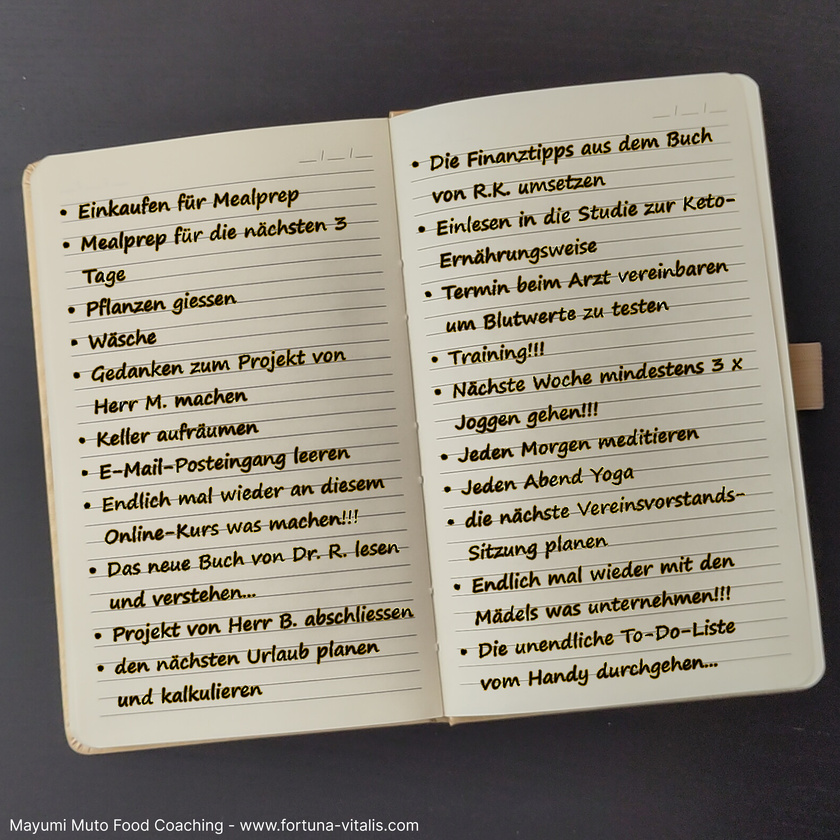 • Einkaufen für Mealprep
• Mealprep für die nächsten 3
Tage
• Pflanzen giessen
• Wäsche
• Gedanken zum Projekt von
Herr M. machen
• Keller aufräumen
• E-Mail-Posteingang leeren
• Endlich mal wieder an diesem
Online-Kurs was machen!!!
• Das neue Buch von Dr. R. lesen
und verstehen...
• Projekt von Herr B. abschliessen
• den nächsten Urlaub planen
und kalkulieren
__/__/__
• Die Finanztipps aus dem Buch
von R.K. umsetzen
• Einlesen in die Studie zur Keto-
Ernährungsweise
• Termin beim Arzt vereinbaren
um Blutwerte zu testen
• Training!!!
• Nächste Woche mindestens 3 x
Joggen gehen!!!
• Jeden Morgen meditieren
• Jeden Abend Yoga
• die nächste Vereinsvorstands-
Sitzung planen
• Endlich mal wieder mit den
Mädels was unternehmen!!!
• Die unendliche To-Do-Liste
vom Handy durchgehen...
Mayumi Muto Food Coaching - www.fortuna-vitalis.com